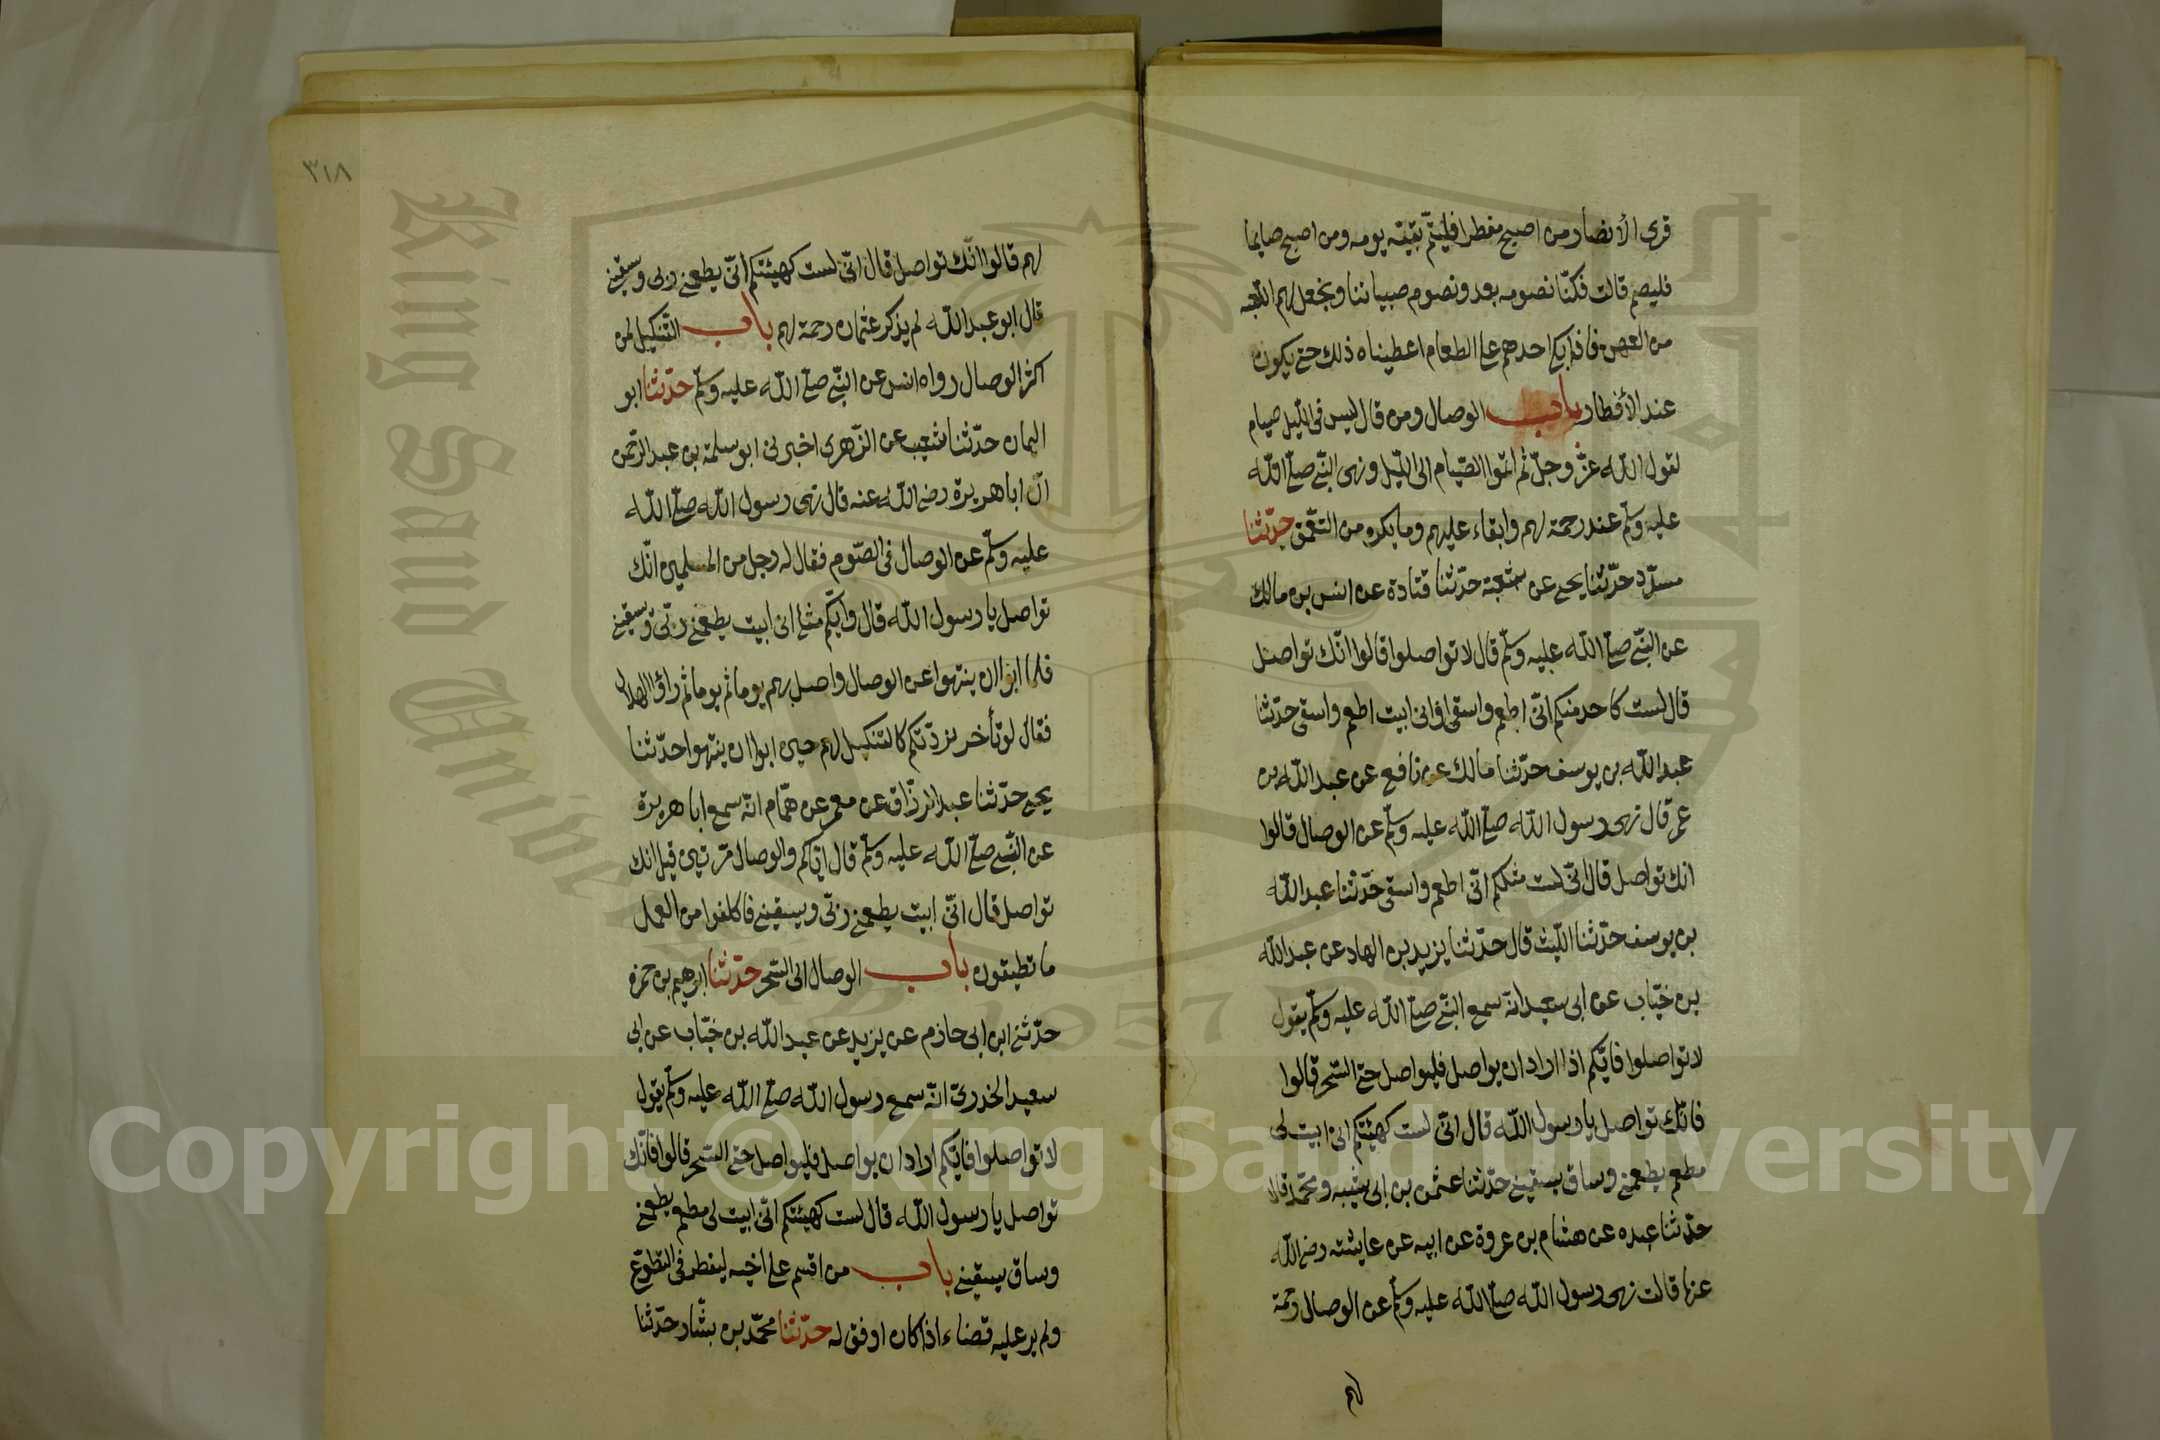 قرى الأنصار من اصبح مفطرا فليتم بقية يومه ومن اصبح صايما
فليصم قالت فكنّا نصومه بعد ونصوم صبياننا ونجعل لهم اللعبة
من العهن فاذا بكى احدهم على الطعام اعطيناه ذلك حتى يكون
عند الأفطار باب الوصال ومن قال ليس في الليل صيام
لقول الله عزّ وجلّ ثم اتموا الصّيام الى الليل ونهى النبي صلى الله
عليه وسلم عنه رحمة لهم وابقاء عليهم وما يكره من التعمق حدّثنا
مسدّد حدّثنا يحيى عن شعبة حدّثنا قتادة عن انس بن مالك
عن النبي صلى الله عليه وسلم قال لا تواصلوا قالوا انّك تواصل
قال لست كاحد منكم انّي اطعم واسقى او اني ابيت اطعم واسقى حدّثنا
عبد الله بن يوسف حدّثنا مالك عن نافع عن عبد الله بن
عمر قال نهى رسول الله صلى الله عليه وسلم عن الوصال قالوا
انك تواصل قال انّي لست مثلكم انّي اطعم واسقى حدّثنا عبد الله
بن يوسف حدّثنا اللّيث قال حدّثنا يزيد بن الهاد عن عبد الله
بن خبّاب عن ابي سعيد انّه سمع النبي صلى الله عليه وسلم يقول
لا تواصلوا فايّكم اذا اراد ان يواصل فليواصل حتى السّحر قالوا
فانّك تواصل يا رسول الله قال انّي لست كهيئتكم اني ابيت لي
مطعم يطعمني وساق يسقيني حدّثنا عثمن بن ابي شيبه ومحمّد قالا
حدّثنا عبده عن هشام بن عروة عن ابيه عن عايشة رضى الله
عنها قالت نهى رسول الله صلى الله عليه وسلم عن الوصال رحمة
لهم
٣١٨
لهم قالوا انّك تواصل قال انّي لست كهيئتكم انّي يطعمني ربي ويسقين
قال ابو عبد الله لم يذكر عثمان رحمة لهم باب التّنكيل لمن
اكثر الوصال رواه انس عن النّبي صلى الله عليه وسلم حدّثنا ابو
اليمان حدّثنا شعيب عن الزّهرى اخبرني ابو سلمة بن عبد الرّحمن
انّ ابا هريرة رضى الله عنه قال نهى رسول الله صلى الله
عليه وسلّم عن الوصال فى الصّوم فقال له رجل من المسلمين انّك
تواصل يا رسول الله قال وايّكم مثلى انى ابيت يطعمني ربّي ويسقين
فلما ابوا ان ينتهوا عن الوصال واصل بهم يوما ثم يوما ثم راؤا الهلال
فقال لو تأخر لزدتكم كالتنكيل لهم حين ابوا ان ينتهوا حدّثنا
يحيى حدّثنا عبد الرزّاق عن معمر عن همّام انّه سمع ابا هريرة
عن النّبي صلى الله عليه وسلم قال ايّاكم والوصال مرّتين قيل انك
تواصل قال انّي ابيت يطعمني ربّي ويسقيني فاكلفوا من العمل
ما تطيقون باب الوصال الى السّحر حدّثنا ابرهيم بن حمزه
حدّثني ابن ابى حازم عن يزيد عن عبد الله بن خبّاب عن ابى
سعيد الخدرىّ انّه سمع رسول الله صلى الله عليه وسلّم يقول
لا تواصلوا فايّكم اراد ان يواصل فليواصل حتى السّحر قالوا فانّك
تواصل يا رسول الله قال لست كهيئتكم انّي ابيت لى مطعم يطعمني
وساق يسقيني باب من اقسم على اخيه ليفطر فى التطوّع
ولم ير عليه قضاء اذا كان اوفق له حدّثنا محمّد بن بشّار حدّثنا
King Saud University
1957
Copyright © King Saud University